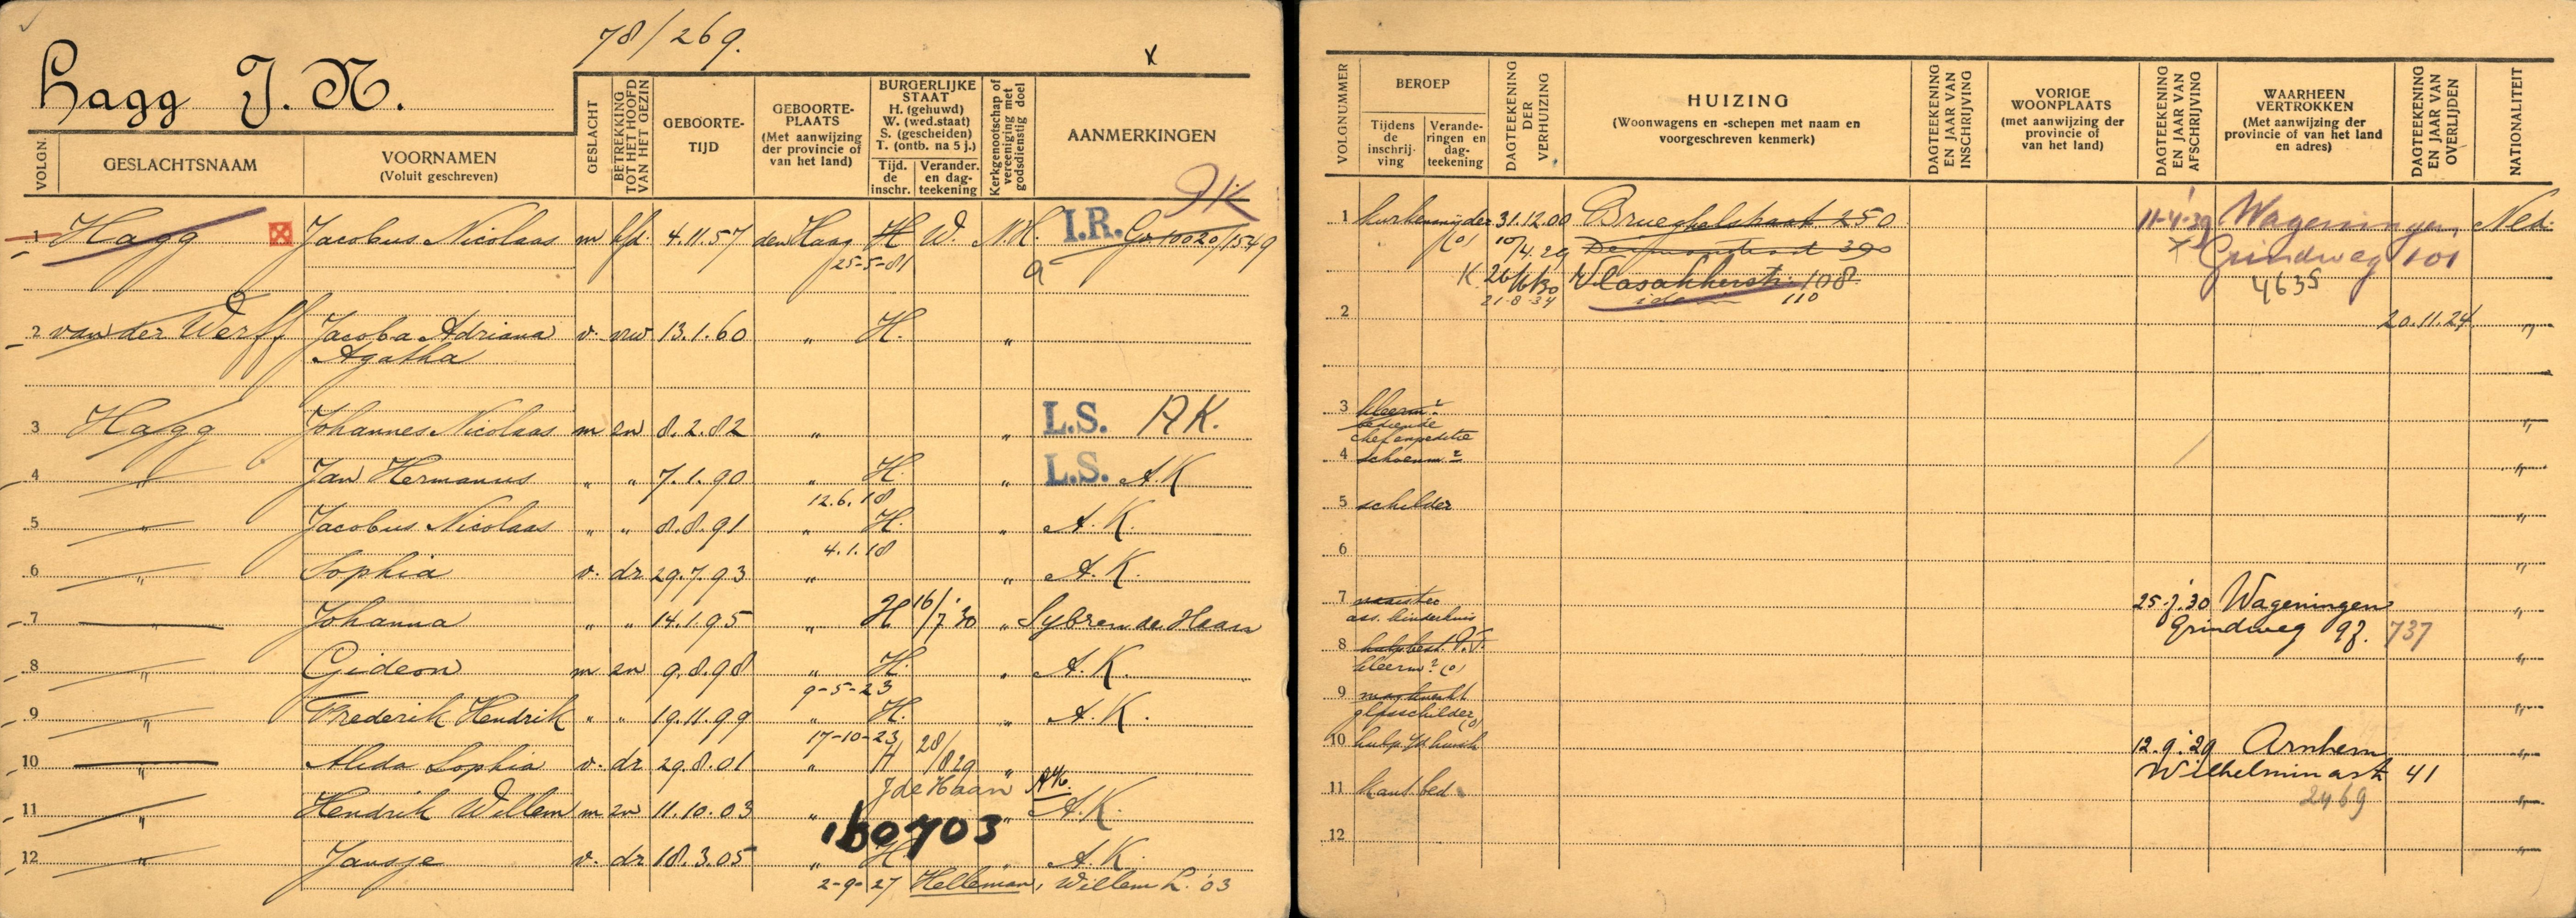 78/269.
x
Hagg J. N.
VOLGN.
GESLACHTSNAAM
VOORNAMEN
(Voluit geschreven)
GESLACHT
BETREKKING
TOT HET HOOFD
VAN HET GEZIN
GEBOORTE-
TIJD
GEBOORTE-
PLAATS
(Met aanwijzing
der provincie of
van het land)
BURGERLIJKE
STAAT
H. (gehuwd)
W. (wed.staat)
S. (gescheiden)
T. (ontb. na 5 j.)
Tijd.
de
inschr.
Verander.
en dag-
teekening
Kerkgenootschap of
vereeniging met
godsdienstig doel
AANMERKINGEN
1 Hagg Jacobus Nicolaas m hfd. 4.11.57 den Haag H W. N.H. I.R. 10020/1549
25-5-81 a
2 van der Werff Jacoba Adriana v. vrw 13.1.60 „ H. „
Agatha
3 Hagg Johannes Nicolaas m zn 8.2.82 „ „ L.S. A.K.
4 „ Jan Hermanus „ „ 7.1.90 „ H. „ L.S. A.K
12.6.18
5 „ Jacobus Nicolaas „ „ 8.8.91 „ H. „ A.K.
4.1.18
6 „ Sophia v. dr 29.7.93 „ „ A.K.
7 „ Johanna „ „ 14.1.95 „ H 16/7 30 „ Sybren de Haan
8 „ Gideon m zn 9.8.98 „ H. „ A.K.
9-5-23
9 „ Frederik Hendrik „ „ 19.11.99 „ H. „ A.K.
17-10-23
10 „ Alida Sophia v. dr 29.8.01 „ H 28/829 „
J de Haan A.K.
11 „ Hendrik Willem m zn 11.10.03 „ „ A.K.
160703
12 „ Jansje v. dr 18.3.05 „ H „ A.K.
2-9-27 Helleman, Willem L. '03
VOLGNUMMER
BEROEP
Tijdens
de
inschrij-
ving
Verande-
ringen en
dag-
teekening
DAGTEEKENING
DER
VERHUIZING
HUIZING
(Woonwagens en -schepen met naam en
voorgeschreven kenmerk)
DAGTEEKENING
EN JAAR VAN
INSCHRIJVING
VORIGE
WOONPLAATS
(met aanwijzing der
provincie of
van het land)
DAGTEEKENING
EN JAAR VAN
AFSCHRIJVING
WAARHEEN
VERTROKKEN
(Met aanwijzing der
provincie of van het land
en adres)
DAGTEEKENING
EN JAAR VAN
OVERLIJDEN
NATIONALITEIT
1 kurkensnijder 31.12.00 Brueghelstraat 250 11-4-39 Wageningen, Ned.
(o) 10/4.29 39 Grindweg 101
K 26/6 30 Vlasakkerstr. 108 4635
21-8-34 idem 110
2 20.11.24 „
3 kleerm.r „
bediende
chef expeditie
4 schoenm.r „
5 schilder „
6 „
7 naaister 25.7.30 Wageningen „
ass. kinderhuis Grindweg 97. 737
8 hulpbest. P.T. „
kleerm.r (o)
9 „
glasschilder (o)
10 12.9.29 Arnhem „
Wilhelminastr 41
11 kant bed 2469 „
12 „